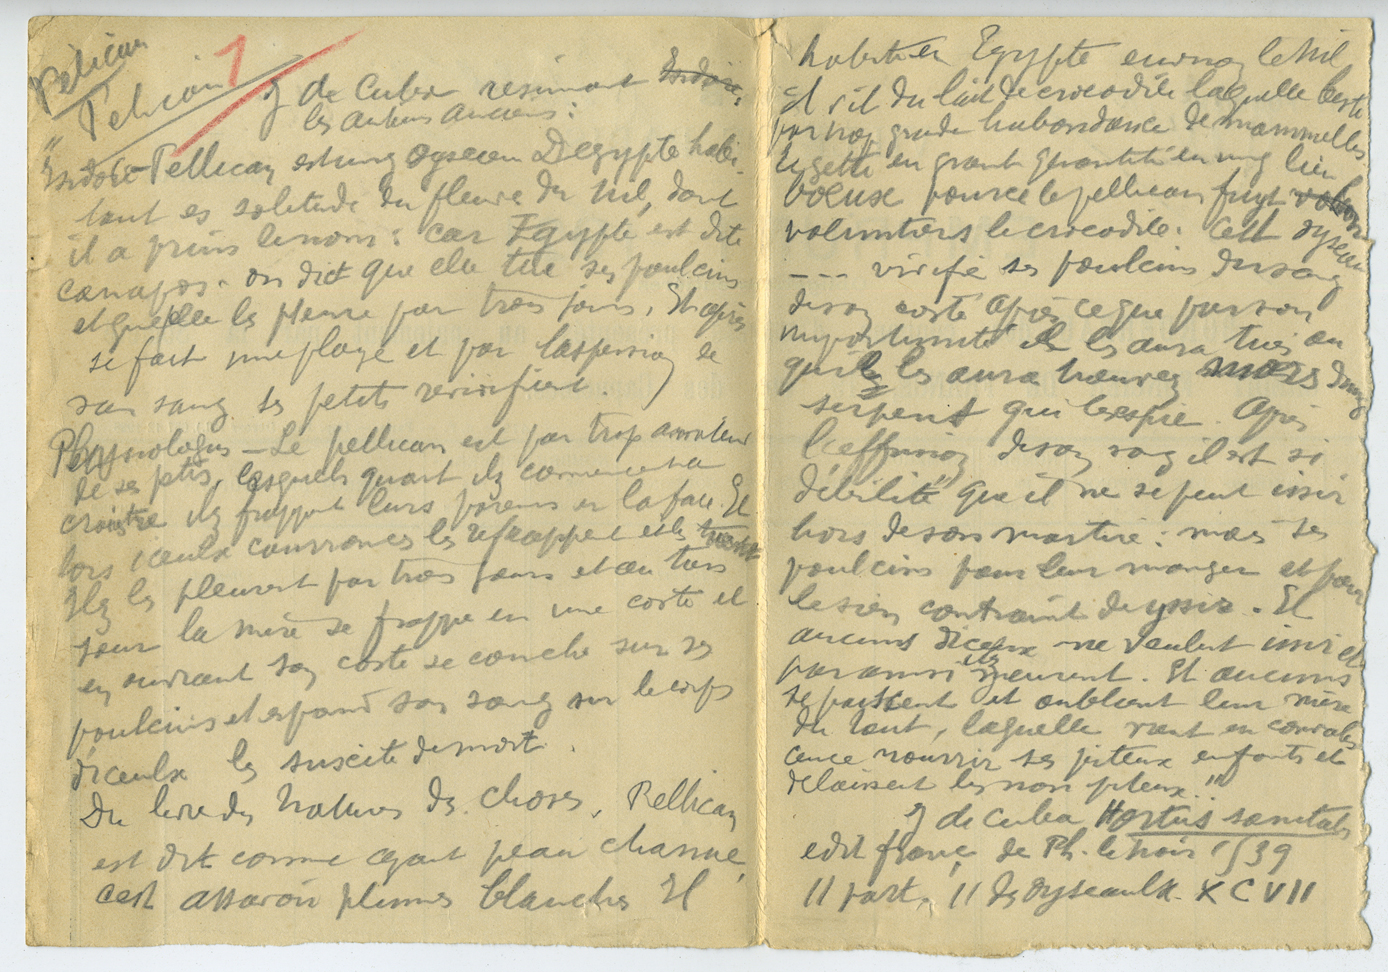 Pelican
Pelican 1
J de Cuba résumant Isidore,
les auteurs anciens :
" Isidore - Pellican est ung oyseau Degypte habi-
tant es solitude du fleuve du Nil, dont
il a prins le nom : car Egypte est dite
canapos. on dict que elle tue ses poulcins
et quelle les pleure par trois jours. Et après
se faict une playe et par laspersion de
son sang ses petits revivifient.
Physiologus - Le pellican est par trop amateur
de ses ptis, lesquels quant ilz commencent a
croistre ilz frappent leurs parens en la face. Et
lors iceulx courroucés les refrappent et les tuent
Ilz les pleurent par trois jours et au tiers
jour la mère se frappe en une coste et
en ouvrant son coste se couche sur ses
poulcins et espand son sang sur le corps
diceulx les suscite de mort.
Du livre des Natures des choses. Pellican
est dit comme ayant peau chanue,
cest assavoir plumes blanches Il
habite en Egypte environ le Nil
et vit du lait de crocodile laquelle beste
par trop grande habondance de mammelles
le gette en grant quantité en ung lieu
boeux pource le pellican suyt
volontiers le crocodile. Cest oyseau
--- vivifie ses poulcins du sang
de son costé Après ce que par son
importunité il les aura tués ou
quil les aura trouvez mors dung
serpent qui les espie. Après
l'effusion de son sang il est si
débilité que il ne se peut issir
hors de son martire : mais ses
poulcins pour leur manger et pour
le sien contraint de yssir. Et
aucuns diceux ne veulent issir et
par ainsi ilz meurent. Et aucuns
se paissent et oublient leur mère
du tout, laquelle vient en convales
cence nourrir ses piteux enfants et
délaissent les non piteux."
J de Cuba Hortus sanitatis
edit franç de Ph. le Noir 1539
II part. II des oyseaulx. XCVII